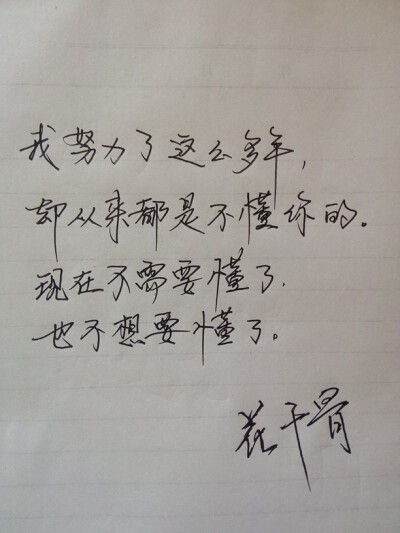 我努力了这么多年,
却从来都是不懂你的。
现在不需要懂了.
也不想要懂了。
花千骨